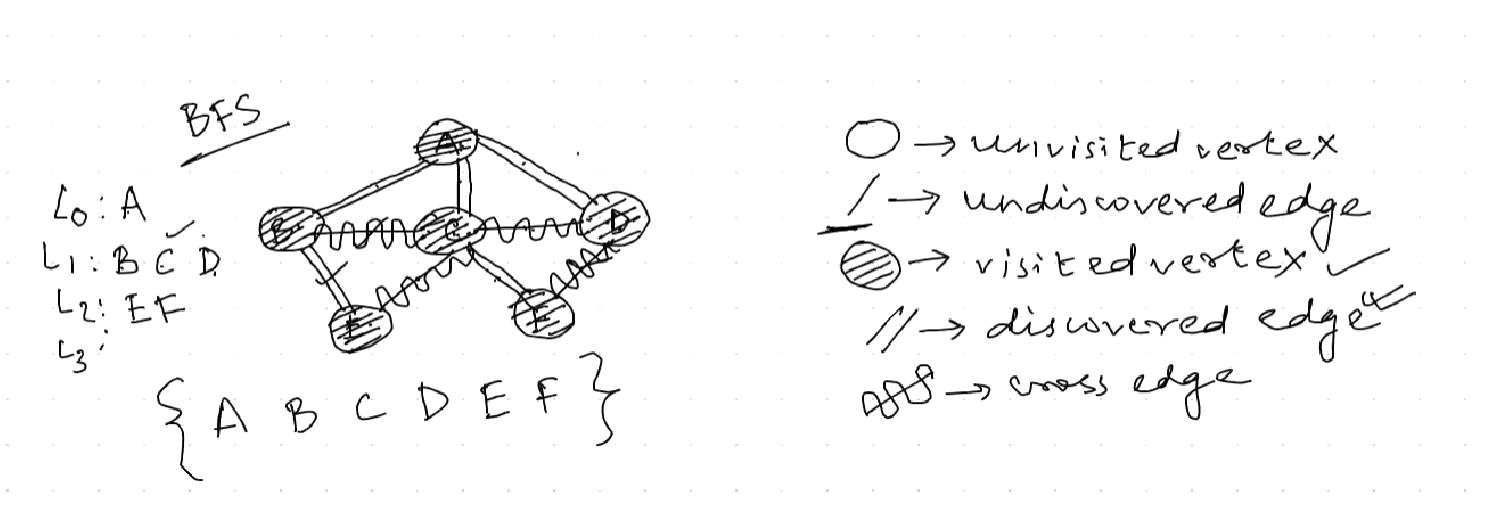 BFS
A
B C D
E F
L0: A
L1: B C D
L2: E F
L3:
{ A B C D E F }
→ unvisited vertex
→ undiscovered edge
→ visited vertex ✓
→ discovered edge
→ cross edge